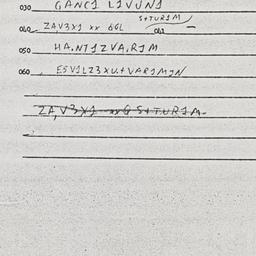 030 GANC1 L1VJN1
040 ZAV3X1 xx GGL S+TUR1M
041
050 HA.NT1ZVA.R1M
060 ESV1LZ3XU.+VAR1MJN
ZA,V3X1 xxG S+TUR1M